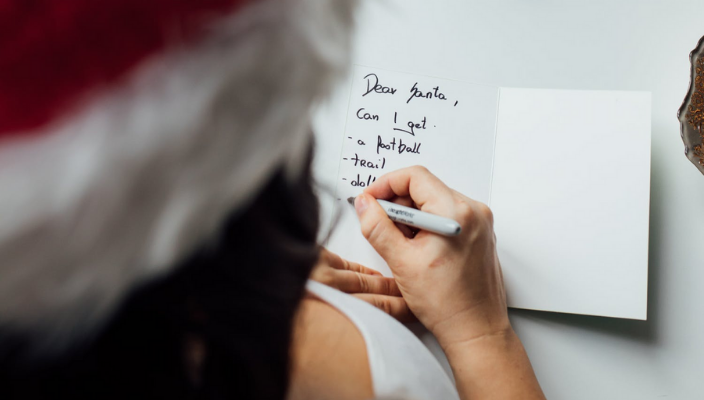 Dear Santa,
Can I get.
- a football
- trail
- doll